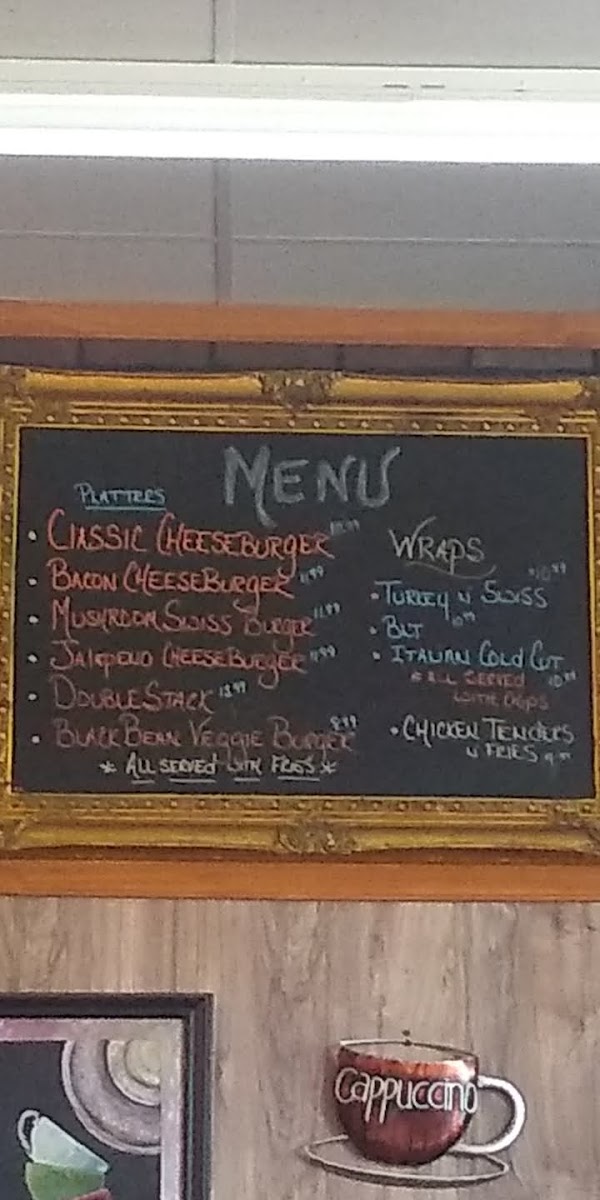 MENU
PLATTERS
• CLASSIC CHEESEBURGER
• BACON CHEESEBURGER 11.99
• MUSHROOM SWISS BURGER 11.99
• JALAPENO CHEESEBURGER 11.99
• DOUBLE STACK 13.99
• BLACK BEAN VEGGIE BURGER 8.99
* ALL SERVED WITH FRIES *
WRAPS
• TURKEY N SWISS $10.99
• BLT 10.99
• ITALIAN COLD CUT 10.99
* ALL SERVED
WITH CHIPS
• CHICKEN TENDERS
N FRIES
cappuccino